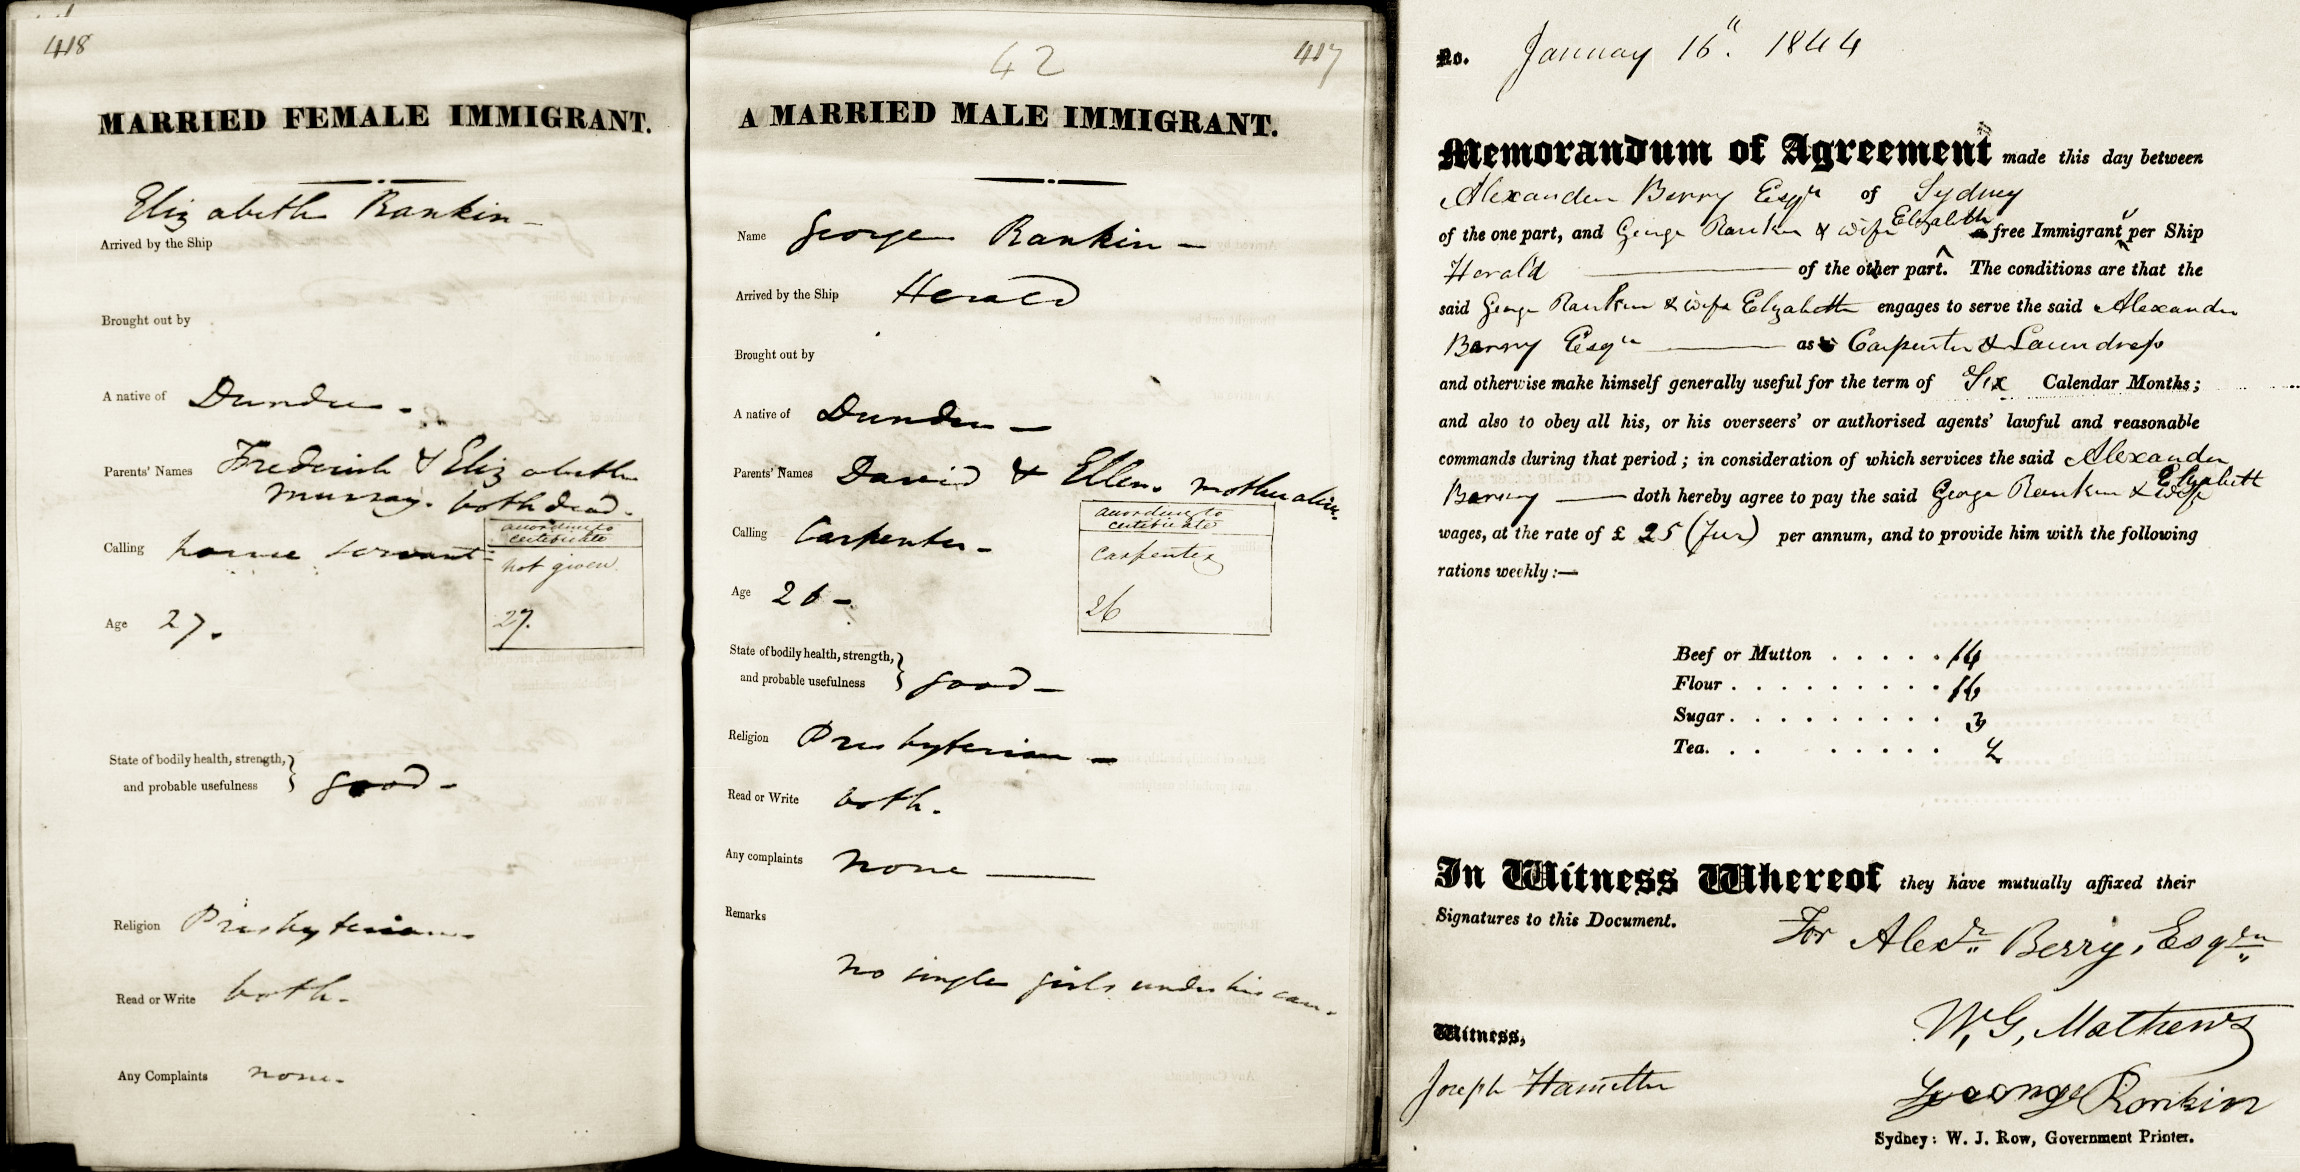 418
MARRIED FEMALE IMMIGRANT.
Elizabeth Rankin -
Arrived by the Ship
Brought out by
A native of Dundee -
Parents' Names Frederick & Elizabeth
Murray. both dead.
according to
certificate
Calling house servant - not given.
Age 27. 27.
State of bodily health, strength,
and probable usefulness } good -
Religion Presbyterian -
Read or Write both -
Any Complaints none -
42 417
A MARRIED MALE IMMIGRANT.
Name George Rankin -
Arrived by the Ship Herald
Brought out by
A native of Dundee -
Parents' Names David & Ellen. mother alive.
according to
certificate
Calling Carpenter - carpenter
Age 26 - 26
State of bodily health, strength,
and probable usefulness } good -
Religion Presbyterian -
Read or Write both.
Any complaints none —
Remarks
No single girls under his care.
No. January 16". 1844
Memorandum of Agreement made this day between
Alexander Berry Esqre of Sydney
of the one part, and George Rankin & wife Elizabeth a free Immigrant per Ship
Herald — of the other part. The conditions are that the
said George Rankin & wife Elizabeth engages to serve the said Alexander
Berry Esqre — as Carpenter & Laundress
and otherwise make himself generally useful for the term of Six Calendar Months;
and also to obey all his, or his overseers' or authorised agents' lawful and reasonable
commands during that period; in consideration of which services the said Alexander
Berry — doth hereby agree to pay the said George Rankin & wife Elizabeth
wages, at the rate of £ 25 per annum, and to provide him with the following
rations weekly :—
Beef or Mutton . . . . . 14
Flour . . . . . . . . . . 16
Sugar . . . . . . . . . . 3
Tea. . . . . . . . . 4
In Witness Whereof they have mutually affixed their
Signatures to this Document.
For Alexr. Berry, Esqre
W. G. Mathews
Witness,
Joseph
George Rankin
Sydney: W. J. Row, Government Printer.